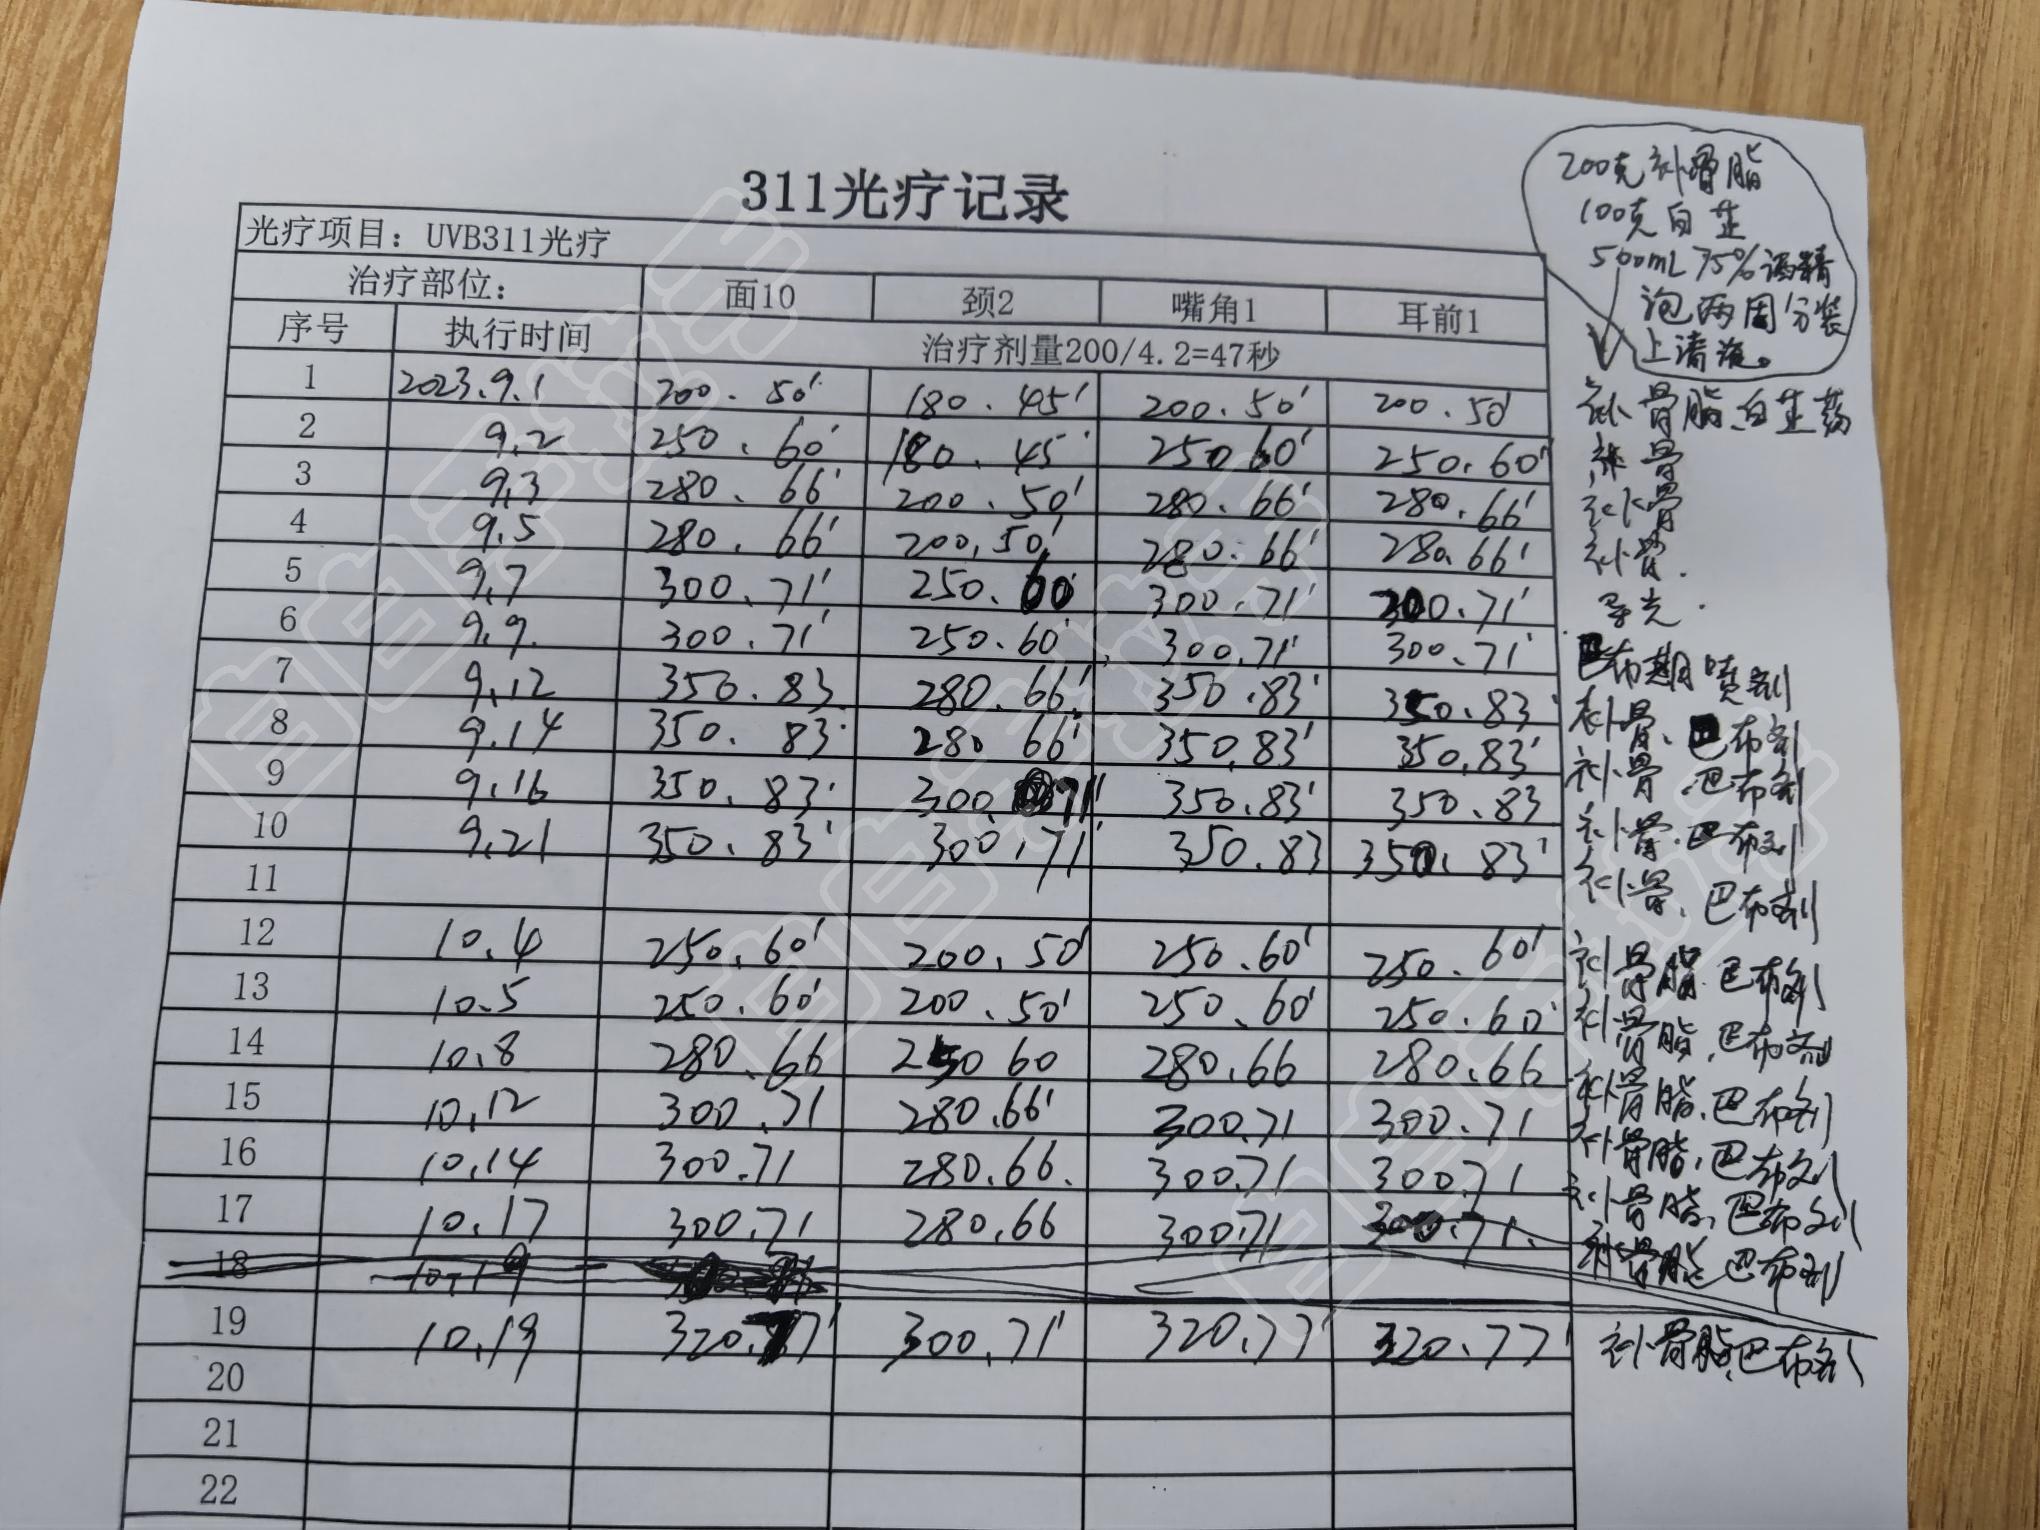 311光疗记录
光疗项目：UVB311光疗
治疗部位： 面10 颈2 嘴角1 耳前1
序号 执行时间 治疗剂量200/4.2=47秒
200克补骨脂
100克白芷
500mL 75%酒精
泡两周分装
上清液。
1 2023.9.1 200.50' 180.45' 200.50' 200.50' 补骨脂.白芷药
2 9.2 250.60' 180.45' 250 60' 250.60' 补骨
3 9.3 280.66' 200.50' 280.66' 280.66' 补骨
4 9.5 280.66' 200.50' 280.66' 280.66' 补骨.
5 9.7 300.71' 250.60' 300.71' 300.71'
6 9.9. 300.71' 250.60' 300.71' 300.71' 巴布期喷剂
7 9.12 350.83. 280.66' 350.83' 350.83' 补骨、巴布剂
8 9.14 350.83' 280 66' 350.83' 350.83' 补骨.巴布剂
9 9.16 350.83' 300.71' 350.83' 350.83 补骨.巴布剂
10 9.21 350.83' 300.71' 350.83 350.83' 补骨、巴布剂
11
12 10.4 250.60' 200.50' 250.60' 250.60' 补骨脂.巴布剂
13 10.5 250.60' 200.50' 250.60' 250.60' 补骨脂.巴布剂
14 10.8 280.66 250 60 280.66 280.66 补骨脂,巴布剂
15 10.12 300.71 280.66' 300.71 300.71 补骨脂,巴布剂
16 10.14 300.71 280.66. 300.71 300.71 补骨脂,巴布剂
17 10.17 300.71 280.66 300.71 300.71. 补骨脂,巴布剂
18 10.19
19 10.19 320.77' 300.71' 320.77' 320.77' 补骨脂,巴布剂
20
21
22